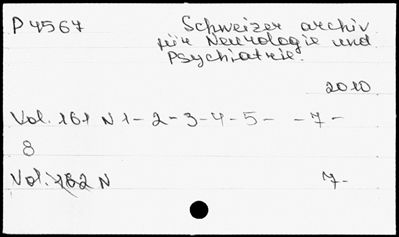 P 4567 Schweizer archiv
für Neurologie und
Psychiatrie.
2010
Vol. 161 N 1 - 2 - 3 - 4 - 5 - - 7 -
8
Vol. 162 N 7 -